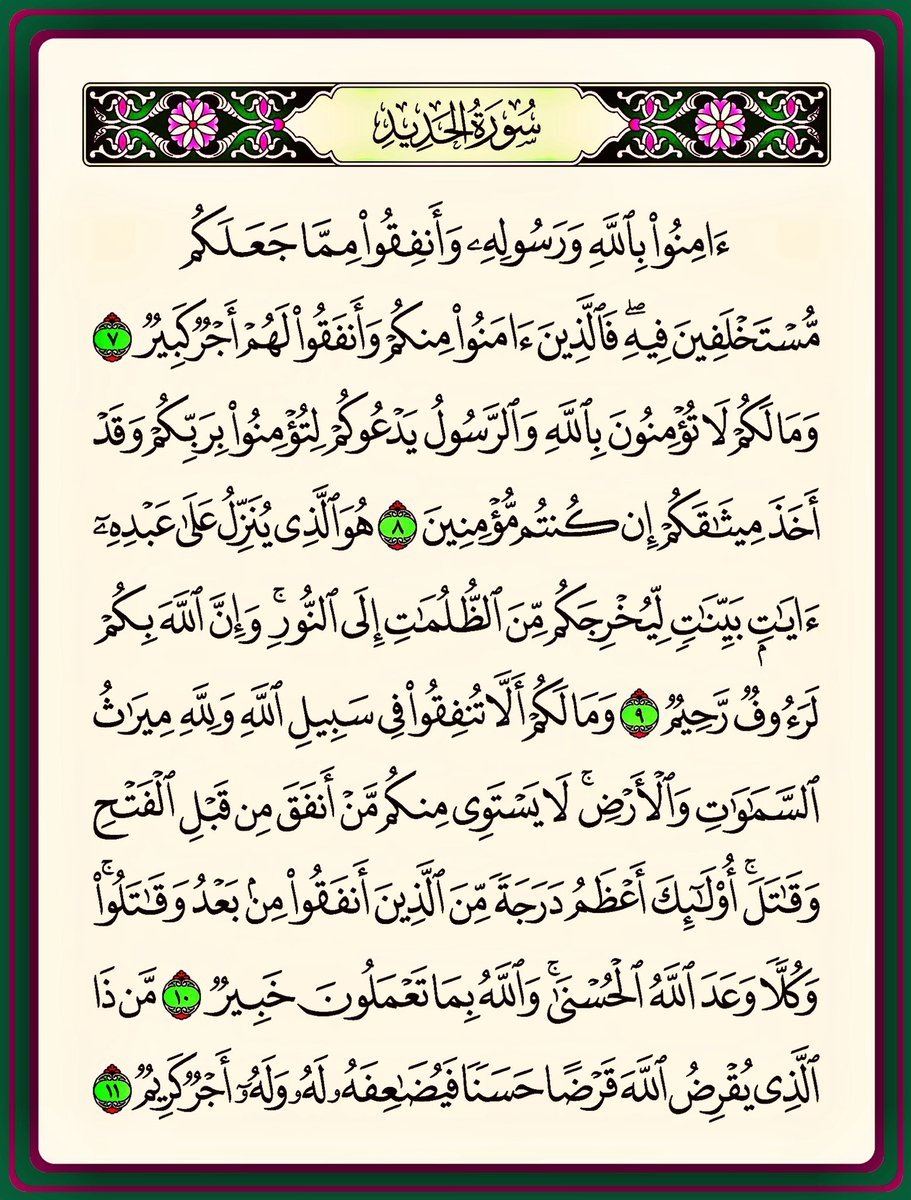 سُورَةُ الحَدِيدِ
ءَامِنُوا۟ بِٱللَّهِ وَرَسُولِهِۦ وَأَنفِقُوا۟ مِمَّا جَعَلَكُم
مُّسْتَخْلَفِينَ فِيهِ ۖ فَٱلَّذِينَ ءَامَنُوا۟ مِنكُمْ وَأَنفَقُوا۟ لَهُمْ أَجْرٌ كَبِيرٌ ٧
وَمَا لَكُمْ لَا تُؤْمِنُونَ بِٱللَّهِ وَٱلرَّسُولُ يَدْعُوكُمْ لِتُؤْمِنُوا۟ بِرَبِّكُمْ وَقَدْ
أَخَذَ مِيثَـٰقَكُمْ إِن كُنتُم مُّؤْمِنِينَ ٨ هُوَ ٱلَّذِى يُنَزِّلُ عَلَىٰ عَبْدِهِۦٓ
ءَايَـٰتٍۭ بَيِّنَـٰتٍ لِّيُخْرِجَكُم مِّنَ ٱلظُّلُمَـٰتِ إِلَى ٱلنُّورِ ۚ وَإِنَّ ٱللَّهَ بِكُمْ
لَرَءُوفٌ رَّحِيمٌ ٩ وَمَا لَكُمْ أَلَّا تُنفِقُوا۟ فِى سَبِيلِ ٱللَّهِ وَلِلَّهِ مِيرَٰثُ
ٱلسَّمَـٰوَٰتِ وَٱلْأَرْضِ ۚ لَا يَسْتَوِى مِنكُم مَّنْ أَنفَقَ مِن قَبْلِ ٱلْفَتْحِ
وَقَـٰتَلَ ۚ أُو۟لَـٰٓئِكَ أَعْظَمُ دَرَجَةً مِّنَ ٱلَّذِينَ أَنفَقُوا۟ مِنۢ بَعْدُ وَقَـٰتَلُوا۟ ۚ
وَكُلًّا وَعَدَ ٱللَّهُ ٱلْحُسْنَىٰ ۚ وَٱللَّهُ بِمَا تَعْمَلُونَ خَبِيرٌ ١٠ مَّن ذَا
ٱلَّذِى يُقْرِضُ ٱللَّهَ قَرْضًا حَسَنًا فَيُضَـٰعِفَهُۥ لَهُۥ وَلَهُۥٓ أَجْرٌ كَرِيمٌ ١١